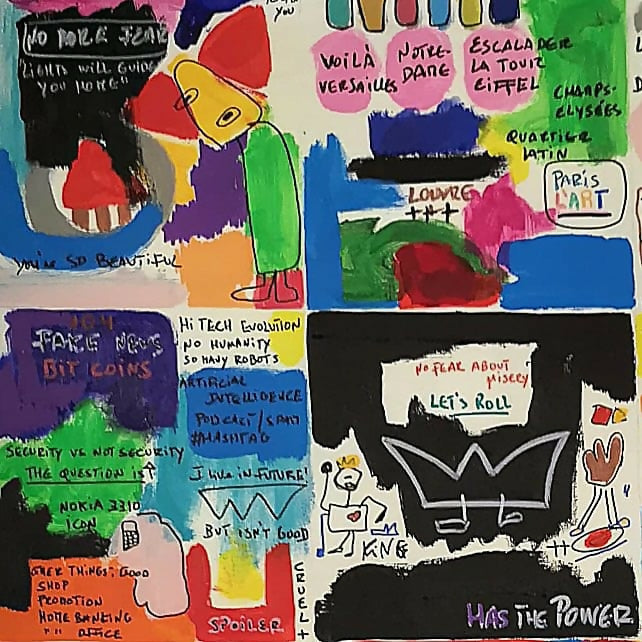 YOU
NO MORE FEAR
"LIGHTS WILL GUIDE
YOU HOME"
YOU'RE SO BEAUTIFUL
VOILÀ
VERSAILLES
NOTRE-
DAME
ESCALADER
LA TOUR
EIFFEL
CHAMPS-
ELYSÉES
QUARTIER
LATIN
LOUVRE
+++
PARIS
L'ART
FAKE NEWS
BIT COINS
HI TECH EVOLUTION
NO HUMANITY
SO MANY ROBOTS
ARTIFICIAL
INTELLIGENCE
PODCAST/SPAM
#HASHTAG
SECURITY VS NOT SECURITY
THE QUESTION IS
NOKIA 3310
ICON
I LIVE IN FUTURE!
BUT ISN'T GOOD
OTHER THINGS: GOOD
SHOP
PROMOTION
HOME BANKING
" " OFFICE
SPOILER
CRUEL +
NO FEAR ABOUT
MISERY
LET'S ROLL
KING
HAS THE POWER